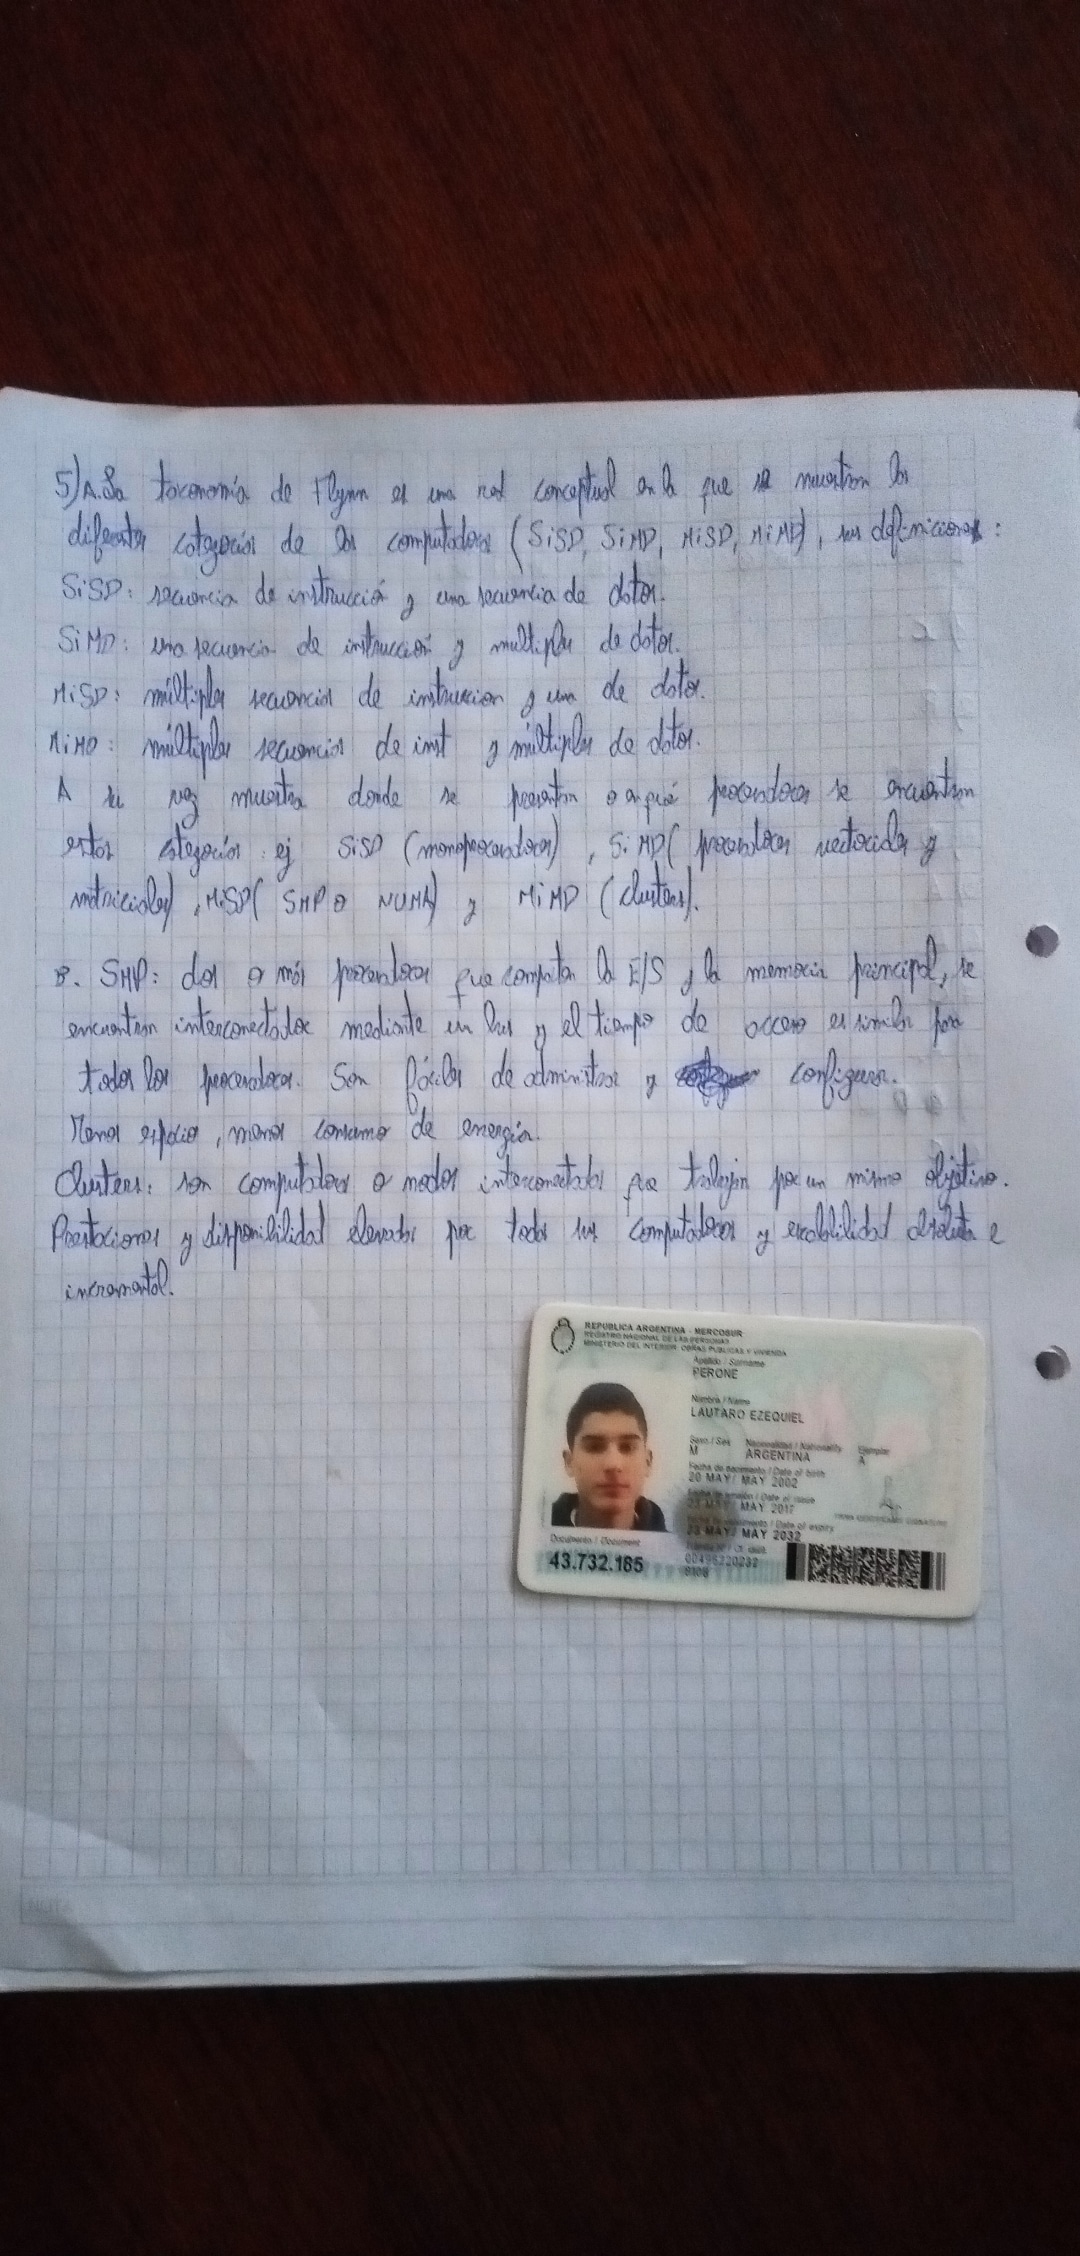 5) A. La taxonomía de Flynn es una red conceptual en la que se muestran las
diferentes categorías de las computadoras (SiSD, SiMD, MiSD, MiMD), sus definiciones:
SiSD: secuencia de instrucción y una secuencia de datos.
SiMD: una secuencia de instrucción y multiples de datos.
MiSD: múltiples secuencias de instruccion y una de datos.
MiMD: múltiples secuencias de inst y múltiples de datos.
A su vez muestra donde se presentan o en qué procesadores se encuentran
estas categorías ej SiSD (monoprocesadores), SiMD( procesadores vectoriales y
matriciales), MiSD( SMP o NUMA) y MiMD (clusters).
B. SMP: dos o más procesadores que comparten la E/S y la memoria principal, se
encuentran interconectados mediante un bus y el tiempo de acceso es similar para
todos los procesadores. Son fáciles de administrar y configurar.
Menos espacio, menos consumo de energía.
Clusters: son computadoras o nodos interconectados que trabajan por un mismo objetivo.
Prestaciones y disponibilidad elevadas por todas sus computadoras y escalabilidad absoluta e
incremental.
REPUBLICA ARGENTINA - MERCOSUR
REGISTRO NACIONAL DE LAS PERSONAS
MINISTERIO DEL INTERIOR, OBRAS PUBLICAS Y VIVIENDA
Apellido / Surname
PERONE
Nombre / Name
LAUTARO EZEQUIEL
Sexo / Sex Nacionalidad / Nationality Ejemplar
M ARGENTINA A
Fecha de nacimiento / Date of birth
20 MAY/ MAY 2002
Fecha de emisión / Date of issue
23 MAY/ MAY 2017
Fecha de vencimiento / Date of expiry
23 MAY/ MAY 2032
Documento / Document
43.732.185
00495220232